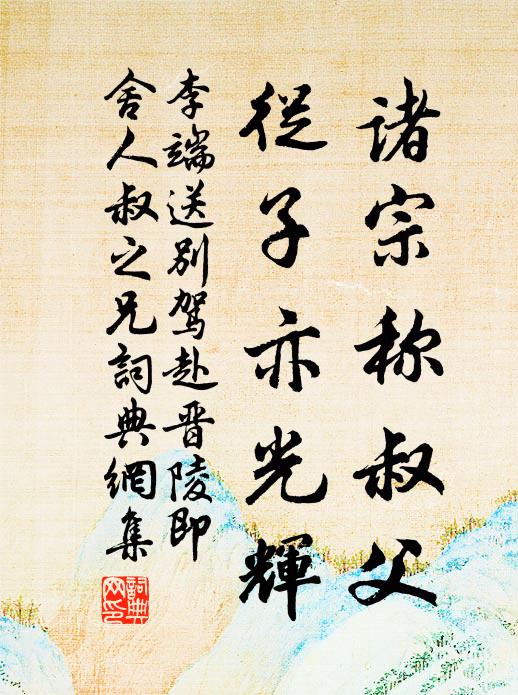 诸宗称叔父
从子亦光辉
李端送别驾赴晋陵即
舍人叔之兄词典网集
词典网印